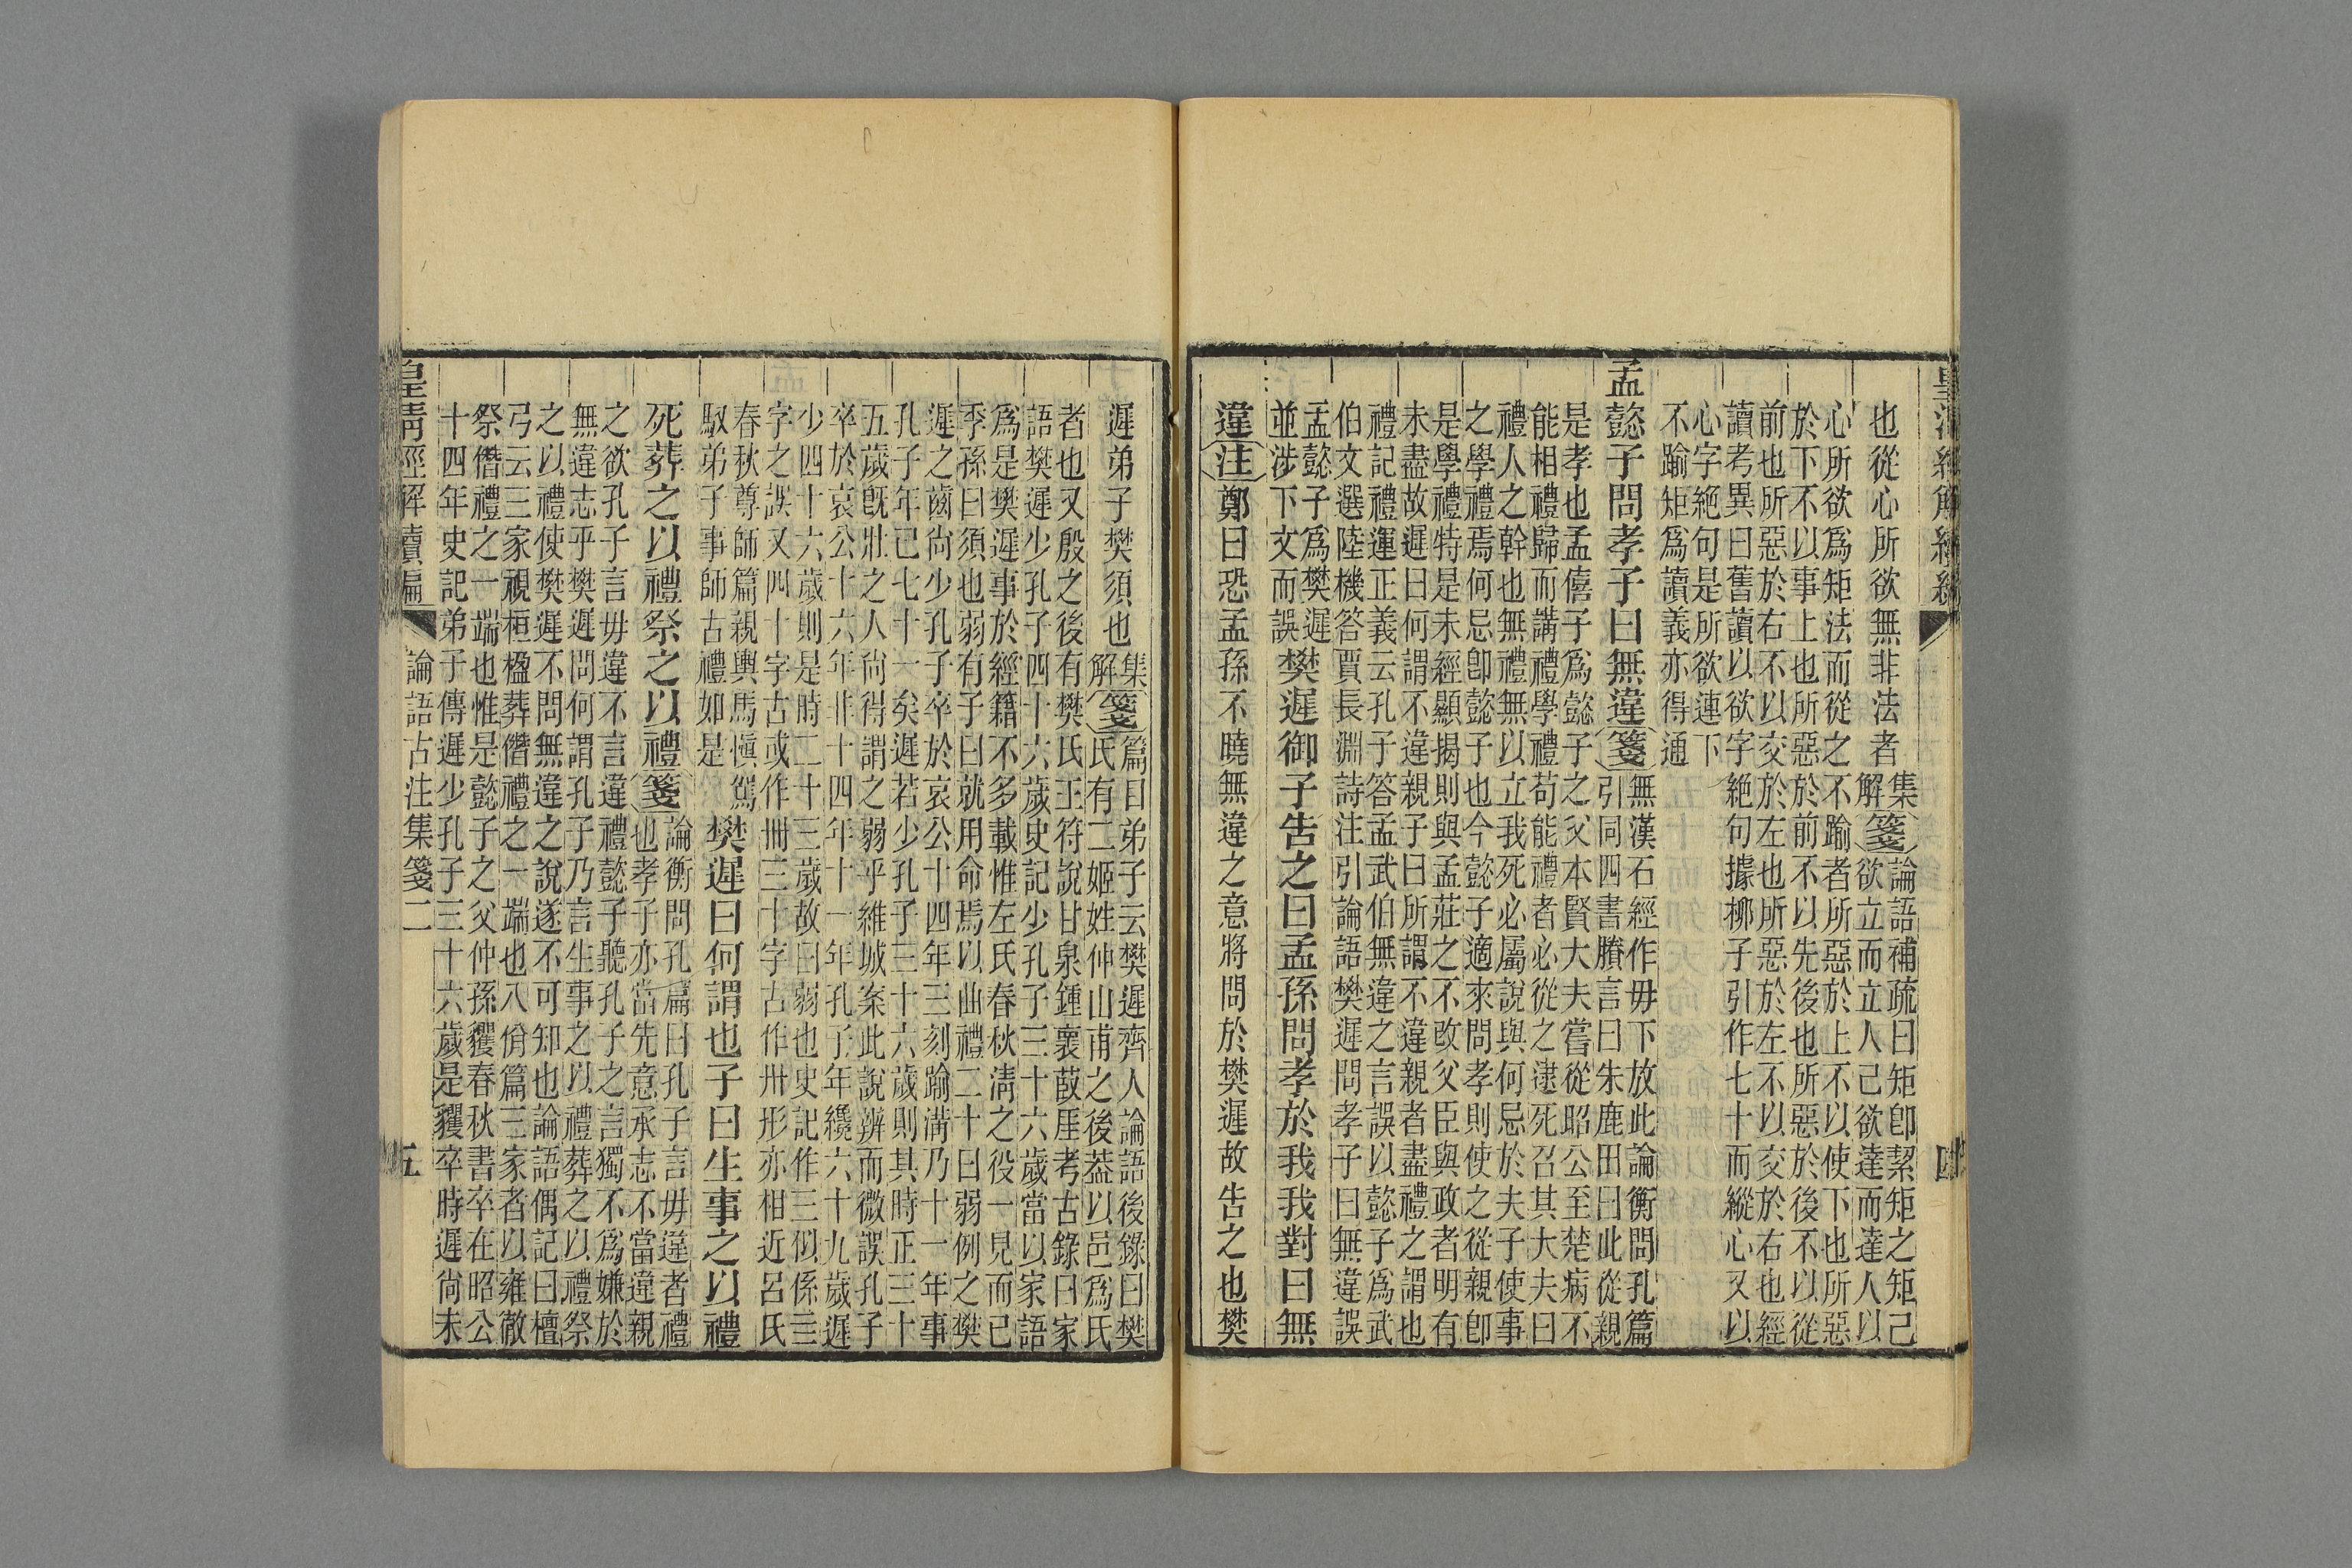 四
也從心所欲無非法者
集
解
箋
論語補疏曰矩卽絜矩之矩己
欲立而立人己欲達而達人以
心所欲爲矩法而從之不踰者所惡於上不以使下也所惡
於下不以事上也所惡於前不以先後也所惡於後不以從
前也所惡於右不以交於左也所惡於左不以交於右也經
讀考異曰舊讀以欲字絶句據柳子引作七十而縱心又以
心字絶句是所欲連下
不踰矩爲讀義亦得通
孟懿子問孝子曰無違箋
無漢石經作毋下放此論衡問孔篇
引同四書賸言曰朱鹿田曰此從親
是孝也孟僖子爲懿子之父本賢大夫嘗從昭公至楚病不
能相禮歸而講禮學禮苟能禮者必從之逮死召其大夫曰
禮人之幹也無禮無以立我死必屬說與何忌於夫子使事
之學禮焉何忌卽懿子也今懿子適來問孝則使之從親卽
是學禮特是未經顯揭則與孟莊之不改父臣與政者明有
未盡故遲曰何謂不違親子曰所謂不違親者盡禮之謂也
禮記禮運正義云孔子答孟武伯無違之言誤以懿子爲武
伯文選陸機答賈長淵詩注引論語樊遲問孝子曰無違誤
孟懿子爲樊遲
並涉下文而誤
樊遲御子告之曰孟孫問孝於我我對曰無
違注鄭曰恐孟孫不曉無違之意將問於樊遲故告之也樊
遲弟子樊須也
集
解
箋
篇目弟子云樊遲齊人論語後錄曰樊
氏有二姬姓仲山甫之後葢以邑爲氏
者也又殷之後有樊氏王符說甘泉鍾襄菣厓考古錄曰家
語樊遲少孔子四十六歲史記少孔子三十六歲當以家語
爲是樊遲事於經籍不多載惟左氏春秋淸之役一見而已
季孫曰須也弱有子曰就用命焉以曲禮二十曰弱例之樊
遲之齒尙少孔子卒於哀公十四年三刻踰溝乃十一年事
孔子年已七十一矣遲若少孔子三十六歲則其時正三十
五歲旣壯之人尙得謂之弱乎維城案此說辨而微誤孔子
卒於哀公十六年非十四年十一年孔子年纔六十九歲遲
少四十六歲則是時二十三歲故曰弱也史記作三似係亖
字之誤又四十字古或作卌三十字古作卅形亦相近呂氏
春秋尊師篇親輿馬愼駕
馭弟子事師古禮如是
樊遲曰何謂也子曰生事之以禮
死葬之以禮祭之以禮箋
論衡問孔篇曰孔子言毋違者禮
也孝子亦當先意承志不當違親
之欲孔子言毋違不言違禮懿子聽孔子之言獨不爲嫌於
無違志乎樊遲問何謂孔子乃言生事之以禮葬之以禮祭
之以禮使樊遲不問無違之說遂不可知也論語偶記曰檀
弓云三家視桓楹葬僭禮之一端也八佾篇三家者以雍徹
祭僭禮之一端也惟是懿子之父仲孫貜春秋書卒在昭公
十四年史記弟子傳遲少孔子三十六歲是貜卒時遲尙未
皇清經解續編 論語古注集箋二 五